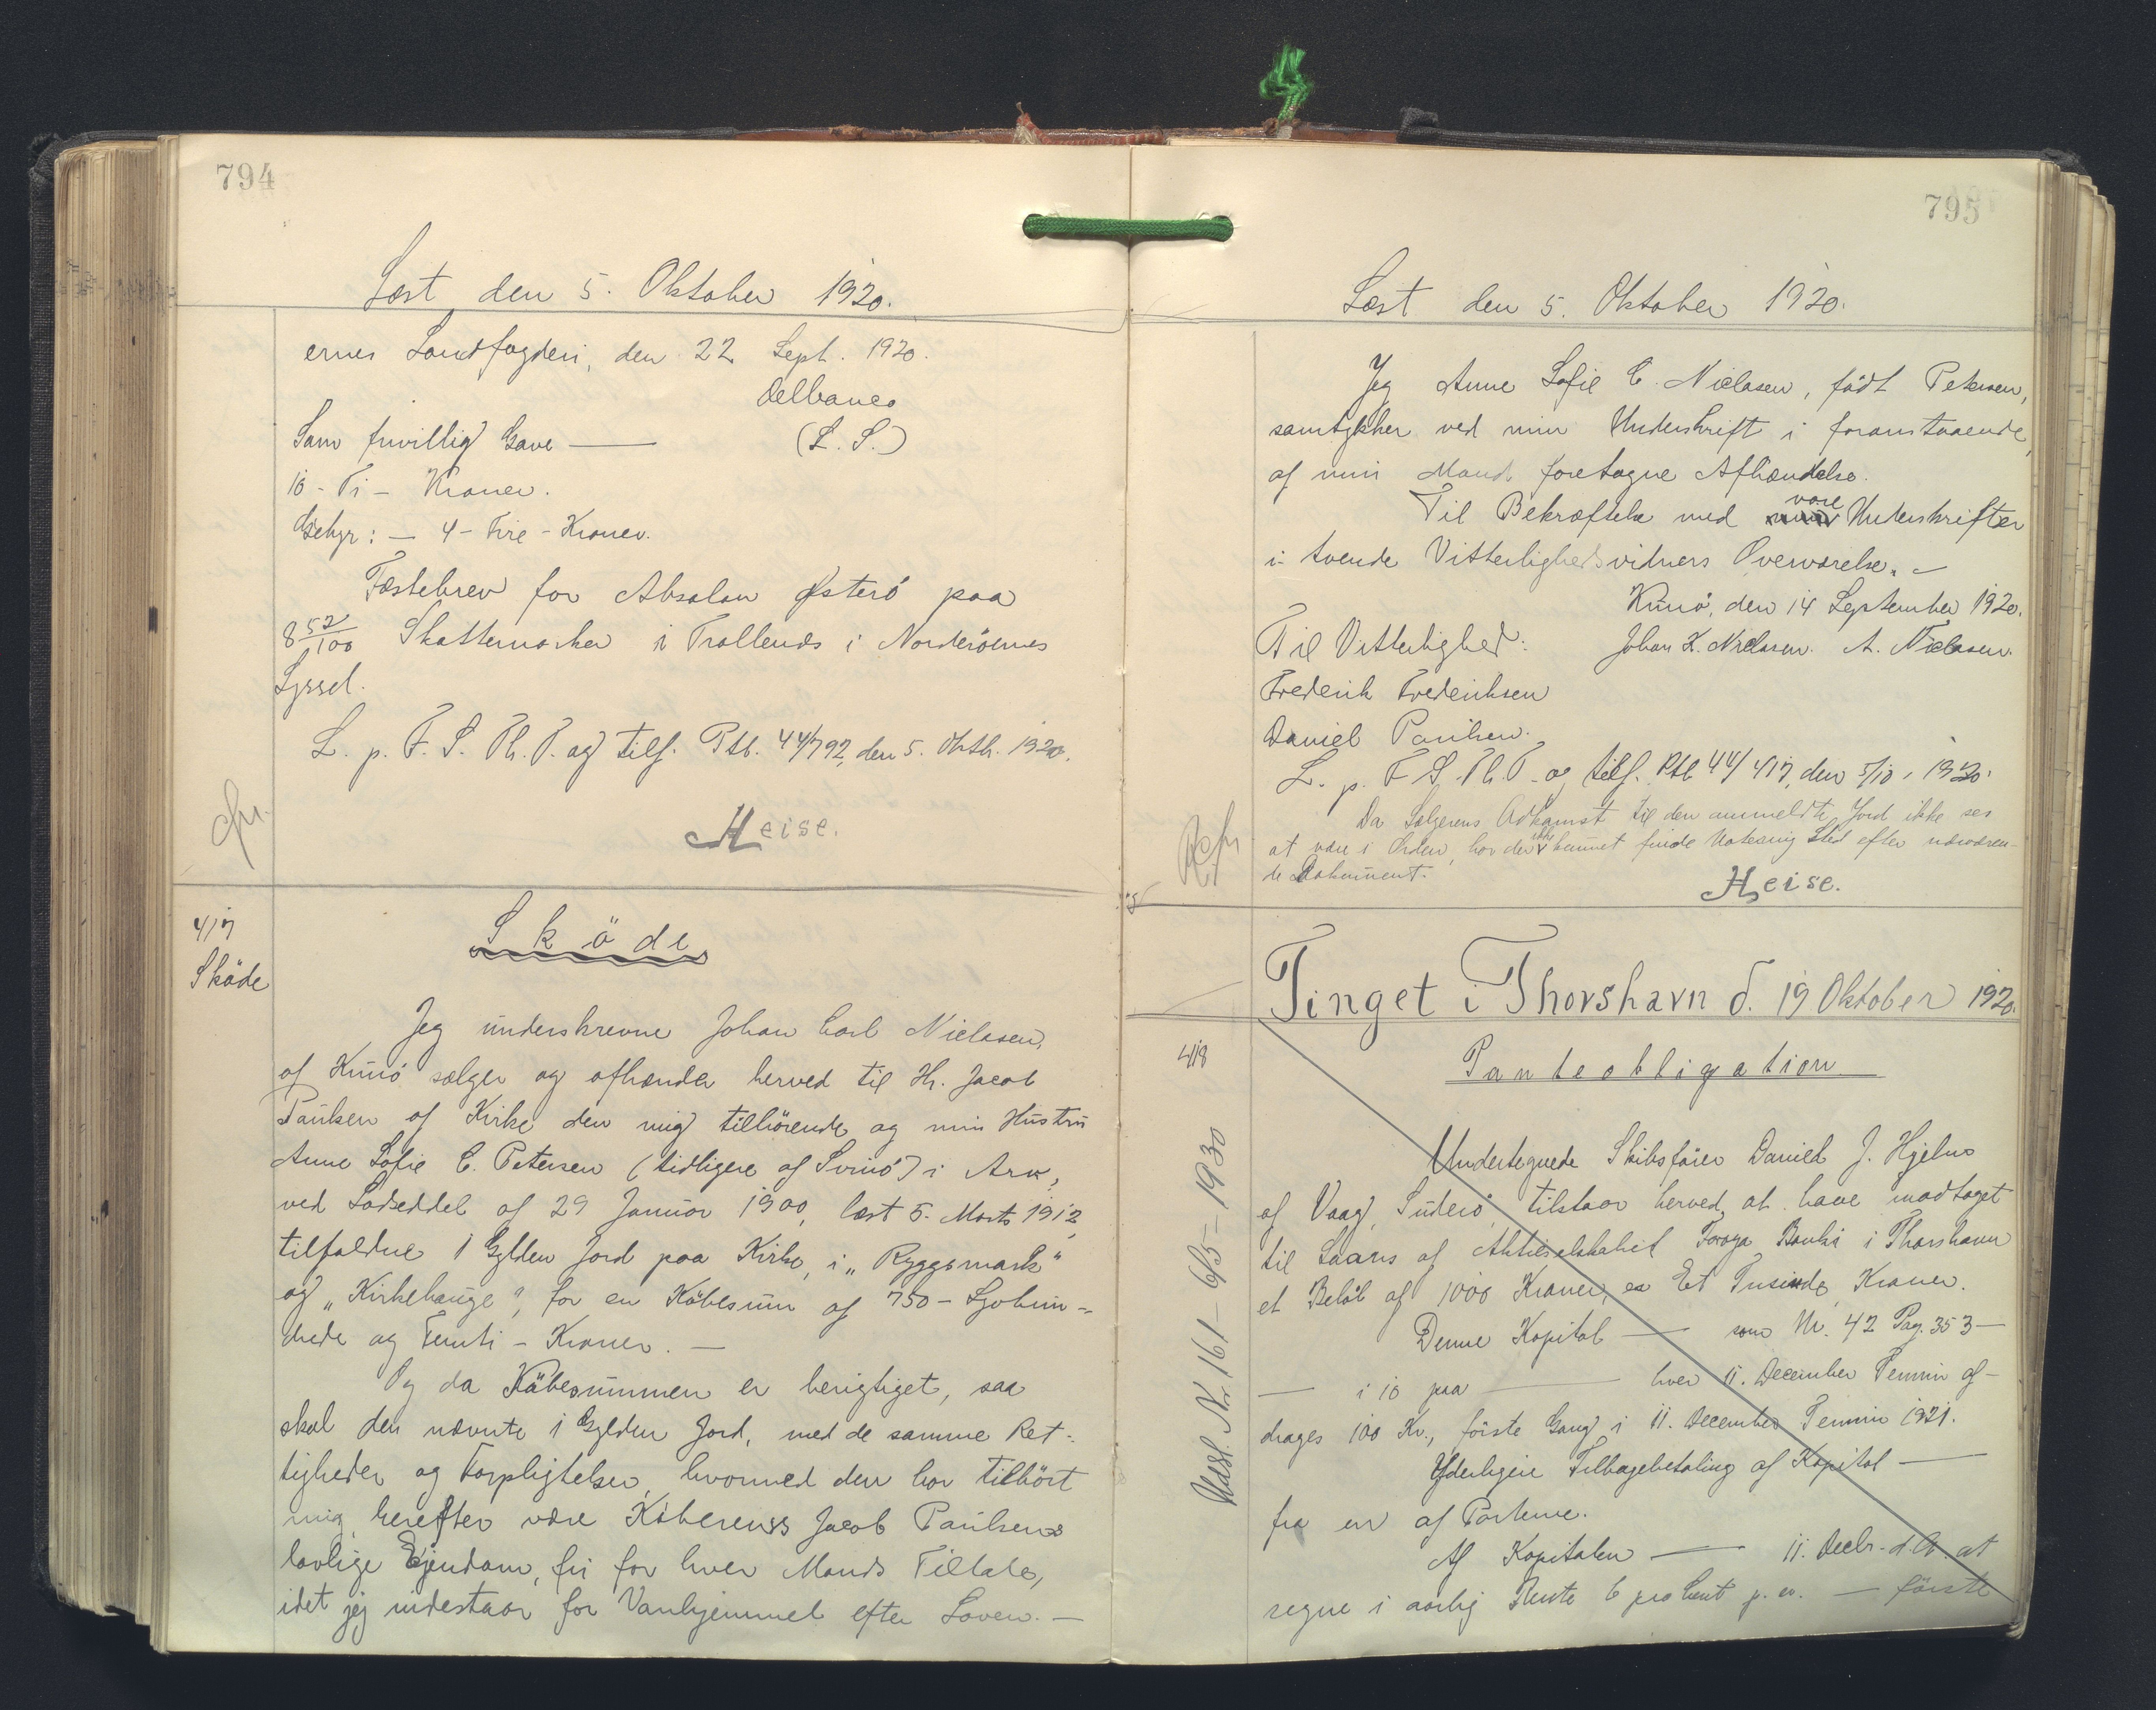 794
Læst den 5. Oktober 1920.
ernes Landfogderi, den 22 Sept. 1920.
Delbanco
Som frivillig Gave — (L. S.)
10 - Ti - Kroner.
Gebyr: - 4 - Fire - Kroner.
Fæstebrev for Absalon Østerö paa
8 52/100 Skattemarker i Trollenæs i Norderöernes
Syssel.
L. p. F. S. Th. T. og tilf. Ptb. 44/792, den 5. Oktb. 1920.
cfr.
Heise.
417
Sköde
Sköde
Jeg underskrevne Johan Carl Nielasen,
af Kunö sælger og afhænder herved til Hr. Jacob
Paulsen af Kirke den mig tilhörende og min Hustru
Anne Sofie C. Petersen (tidligere af Svinö) i Arv,
ved Lodseddel af 29 Januar 1900, læst 5. Marts 1912,
tilfaldne 1 Gylden Jord paa Kirke, i „Ryggsmark"
og „Kirkehauge", for en Köbesum af 750 - Syvhun-
drede og Femti - Kroner. —
Og da Köbesummen er berigtiget, saa
skal den nævnte 1 Gylden Jord, med de samme Ret-
tigheder og Forpligtelser, hvormed den har tilhört
mig, herefter være Köberens Jacob Paulsens
lovlige Ejendom, fri for hver Mands Tiltale,
idet jeg indestaar for Vanhjemmel efter Loven. —
795
Læst den 5. Oktober 1920.
Jeg Anne Sofie C. Nielasen, född Petersen,
samtykker ved min Underskrift i foranstaaende,
af min Mand foretagne Afhændelse.
Til Bekræftelse med vore Underskrifter
i tvende Vitterlighedsvidners Overværelse. —
Kunö, den 14 September 1920.
Til Vitterlighed: Johan K. Nielasen. A. Nielasen.
Frederik Frederiksen
Daniel Paulsen.
L. p. F. S. Th. T. og tilf. Ptb 44/417, den 5/10, 1920.
Da Sælgerens Adkomst til den anmeldte Jord ikke ses
at være i Orden, har der ikke kunnet finde Notering Sted efter nærværen-
de Dokument.
Heise.
Tinget i Thorshavn d. 19 Oktober 1920.
418
Panteobligation
Undertegnede Skibsförer Daniel J. Hjelm
af Vaag, Suderö, tilstaar herved, at have modtaget
til Laans af Aktieselskabet Föroya Banki i Thorshavn
et Belöb af 1000 Kroner, er Et Tusinde Kroner.
Denne Kapital — som Nr. 42 Pag. 353 —
— i 10 paa — hver 11. December Termin af-
drages 100 Kr., förste Gang i 11. December Termin 1921.
Yderligere Tilbagebetaling af Kapital —
fra en af Parterne.
Af Kapitalen — 11. Decbr. d. A. at
regne i aarlig Rente 6 pro Cent p. a. — förste
Udsl. Nr. 161 - 6/5 - 1930